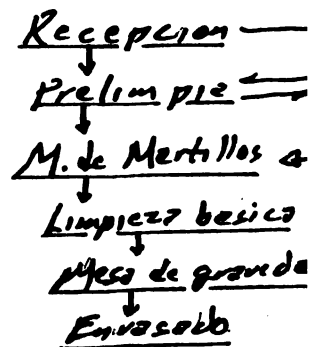 Recepcion
Prelimpie
M. de Martillos
Limpieza basica
Mesa de graveda
Envasado